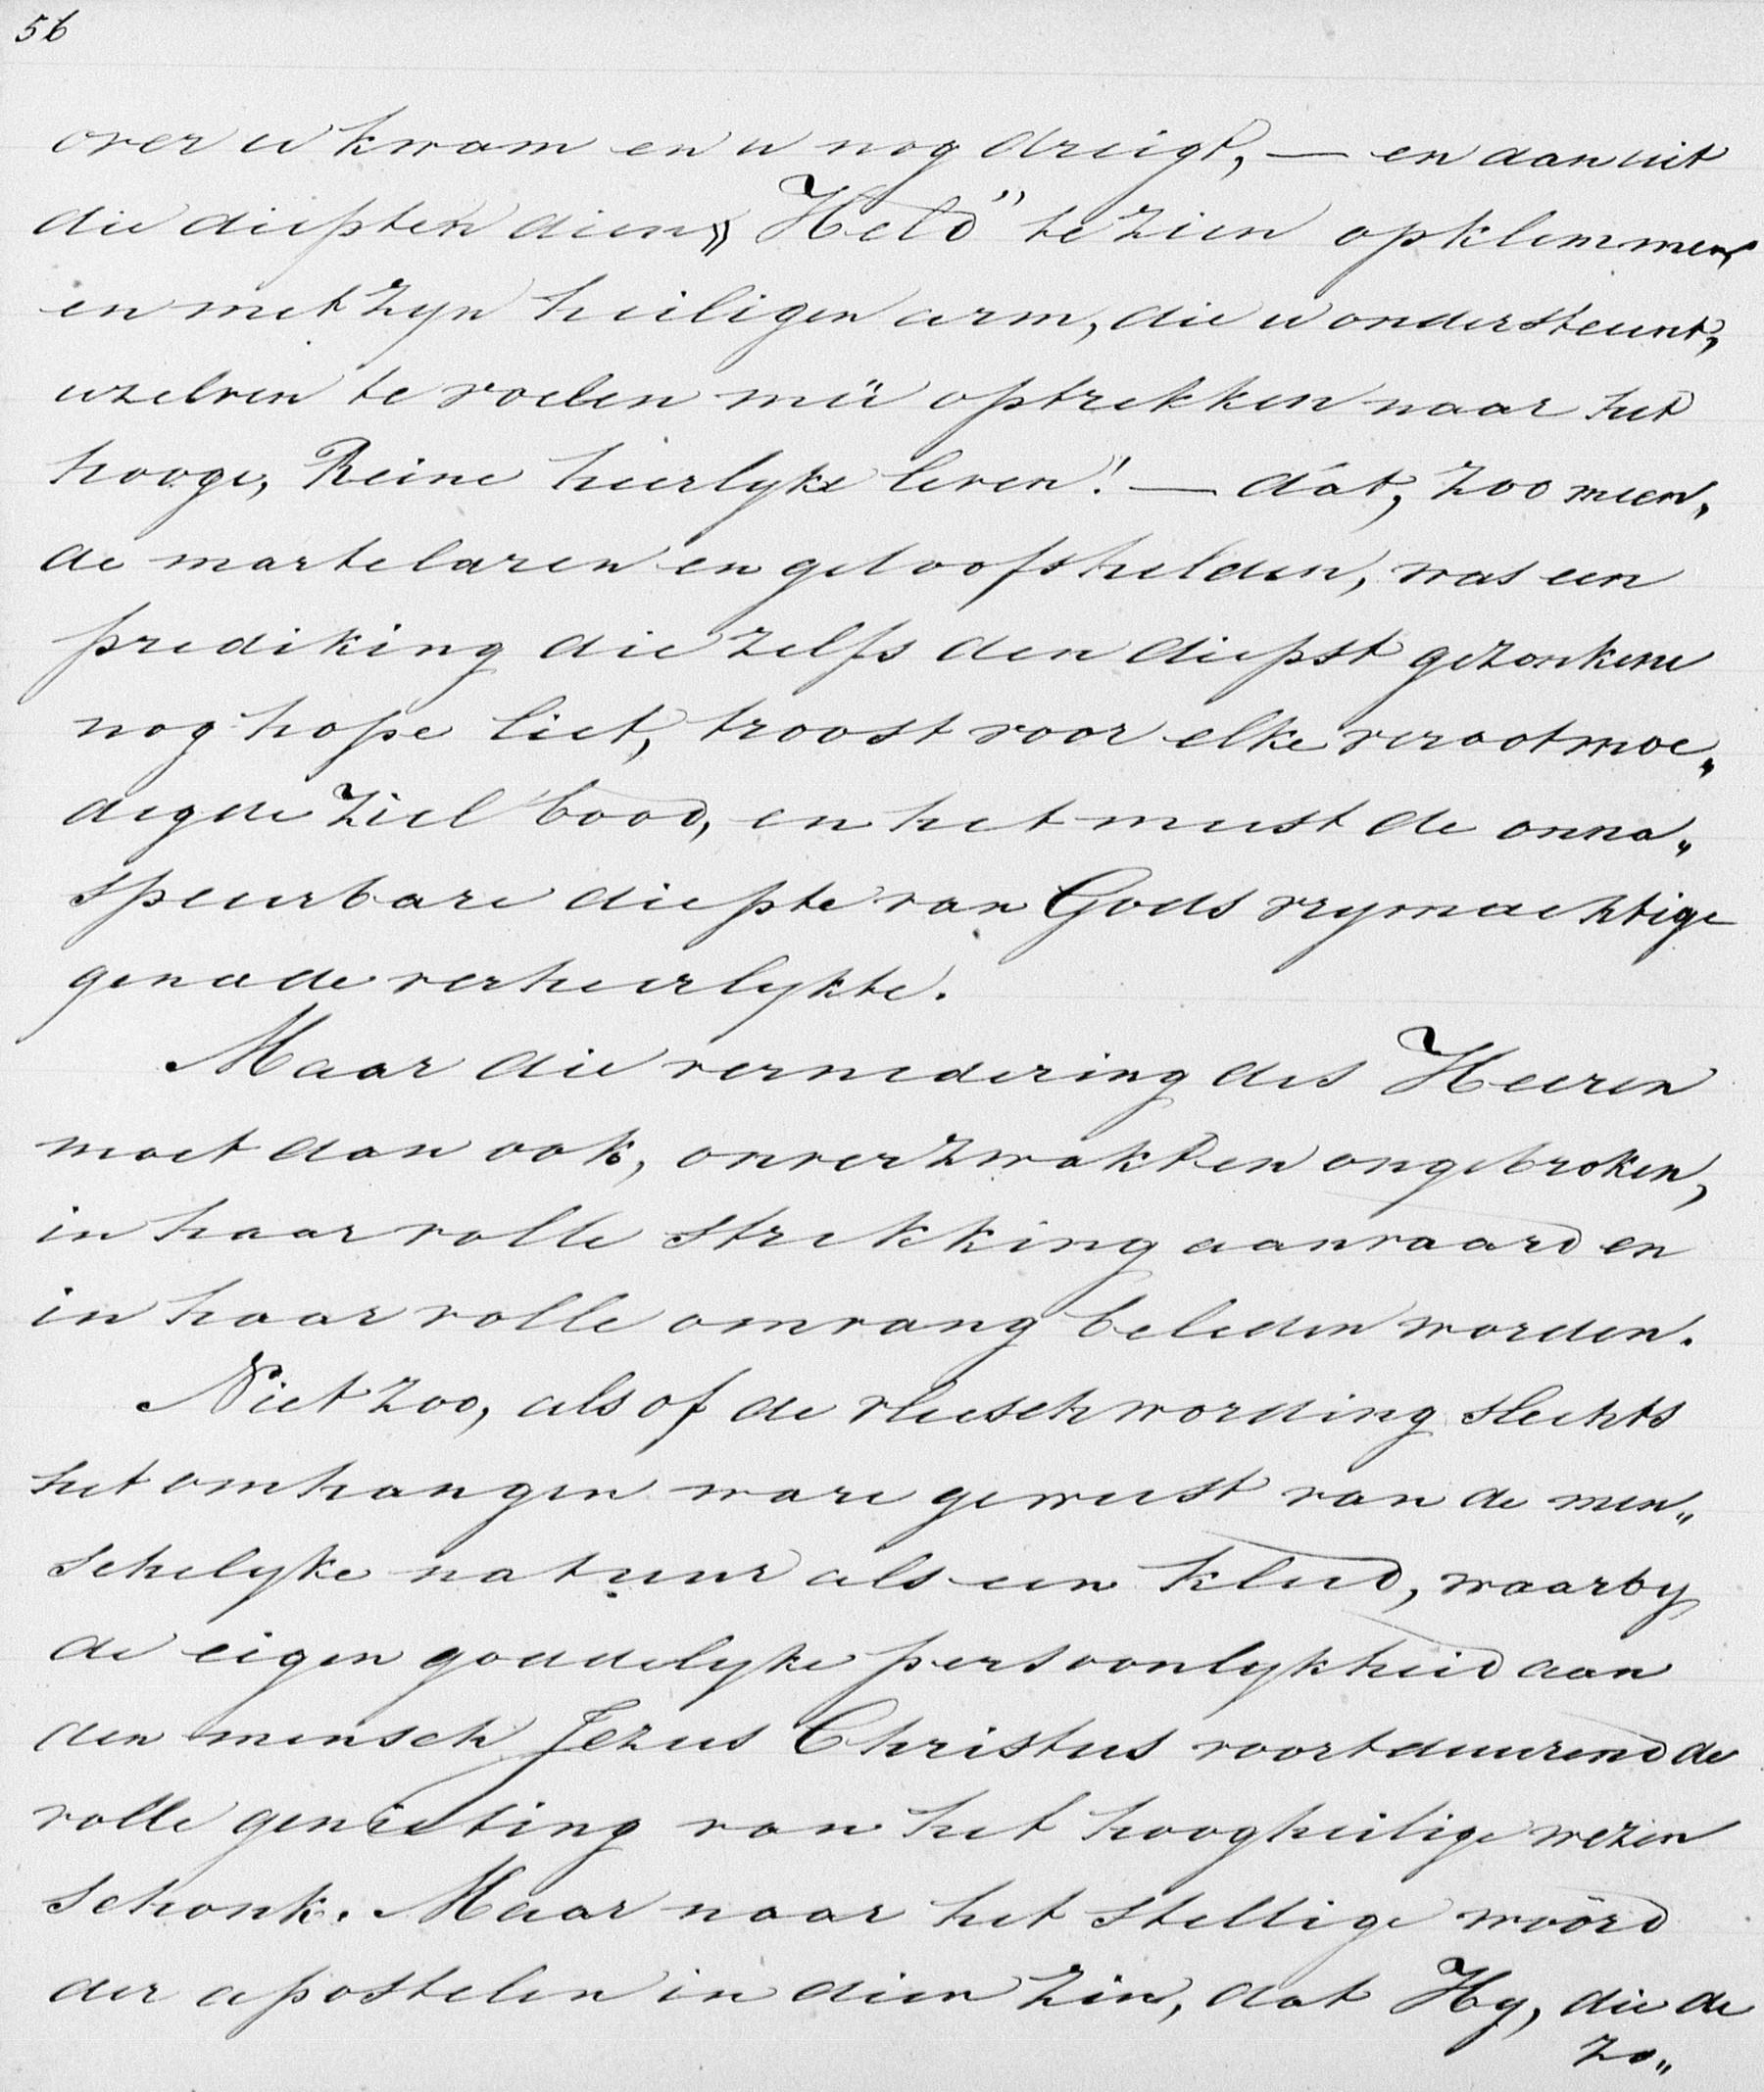 56
over u kwam en u nog dreigt, — en dan uit
die diepten dien „Held" te zien opklemmen
en met zyn heiligen arm, die u ondersteunt,
uzelven te voelen meê optrekken naar het
hooge, Reine heerlyke leven! — dát, zoo meen„
de martelaren en geloofshelden, was een
prediking die zelfs den diepst gezonkene
nog hope liet, troost voor elke verootmoe„
digde ziel bood, en het meest de onna„
speurbare diepte van Gods vrymachtige
genade verheerlykte.
Maar die vernedering des Heeren
moet dan ook, onverzwakt en ongebroken,
in haar volle strekking aanvaard en
in haar volle omvang beleden worden.
Niet zoo, alsof de vleeschwording slechts
het omhangen ware geweest van de men„
schelyke natuur als een kleed, waarby
de eigen goddelyke persoonlykheid aan
den mensch Jezus Christus voortduurend de
volle genieting van het hoogheilige wezen
schonk. Maar naar het stellige woord
der apostelen in dien zin, dat Hy, die de
zo„